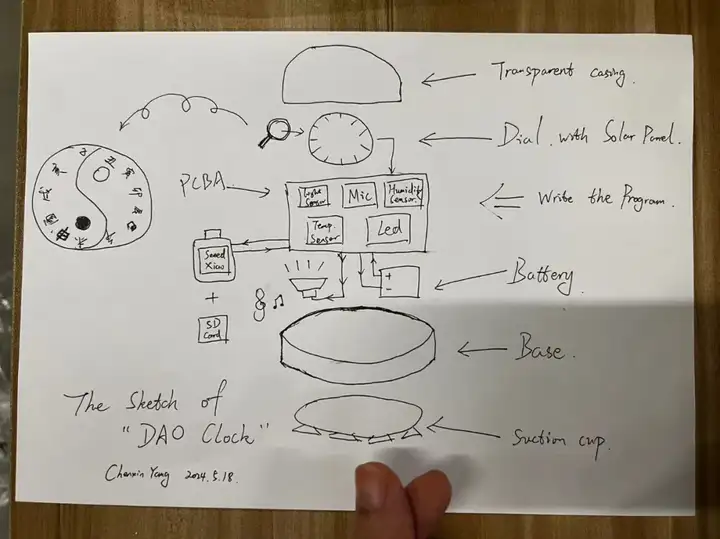 Transparent casing.
Dial with Solar Panel.
PCBA
Light Sensor
Mic
Humidity Sensor.
Write the Program.
Temp. Sensor
Led
Seeed Xiao
+
-
Battery
+
SD Card
Base.
The Sketch of
"DAO Clock"
Suction cup.
Chenxin Yang 2024.5.18.